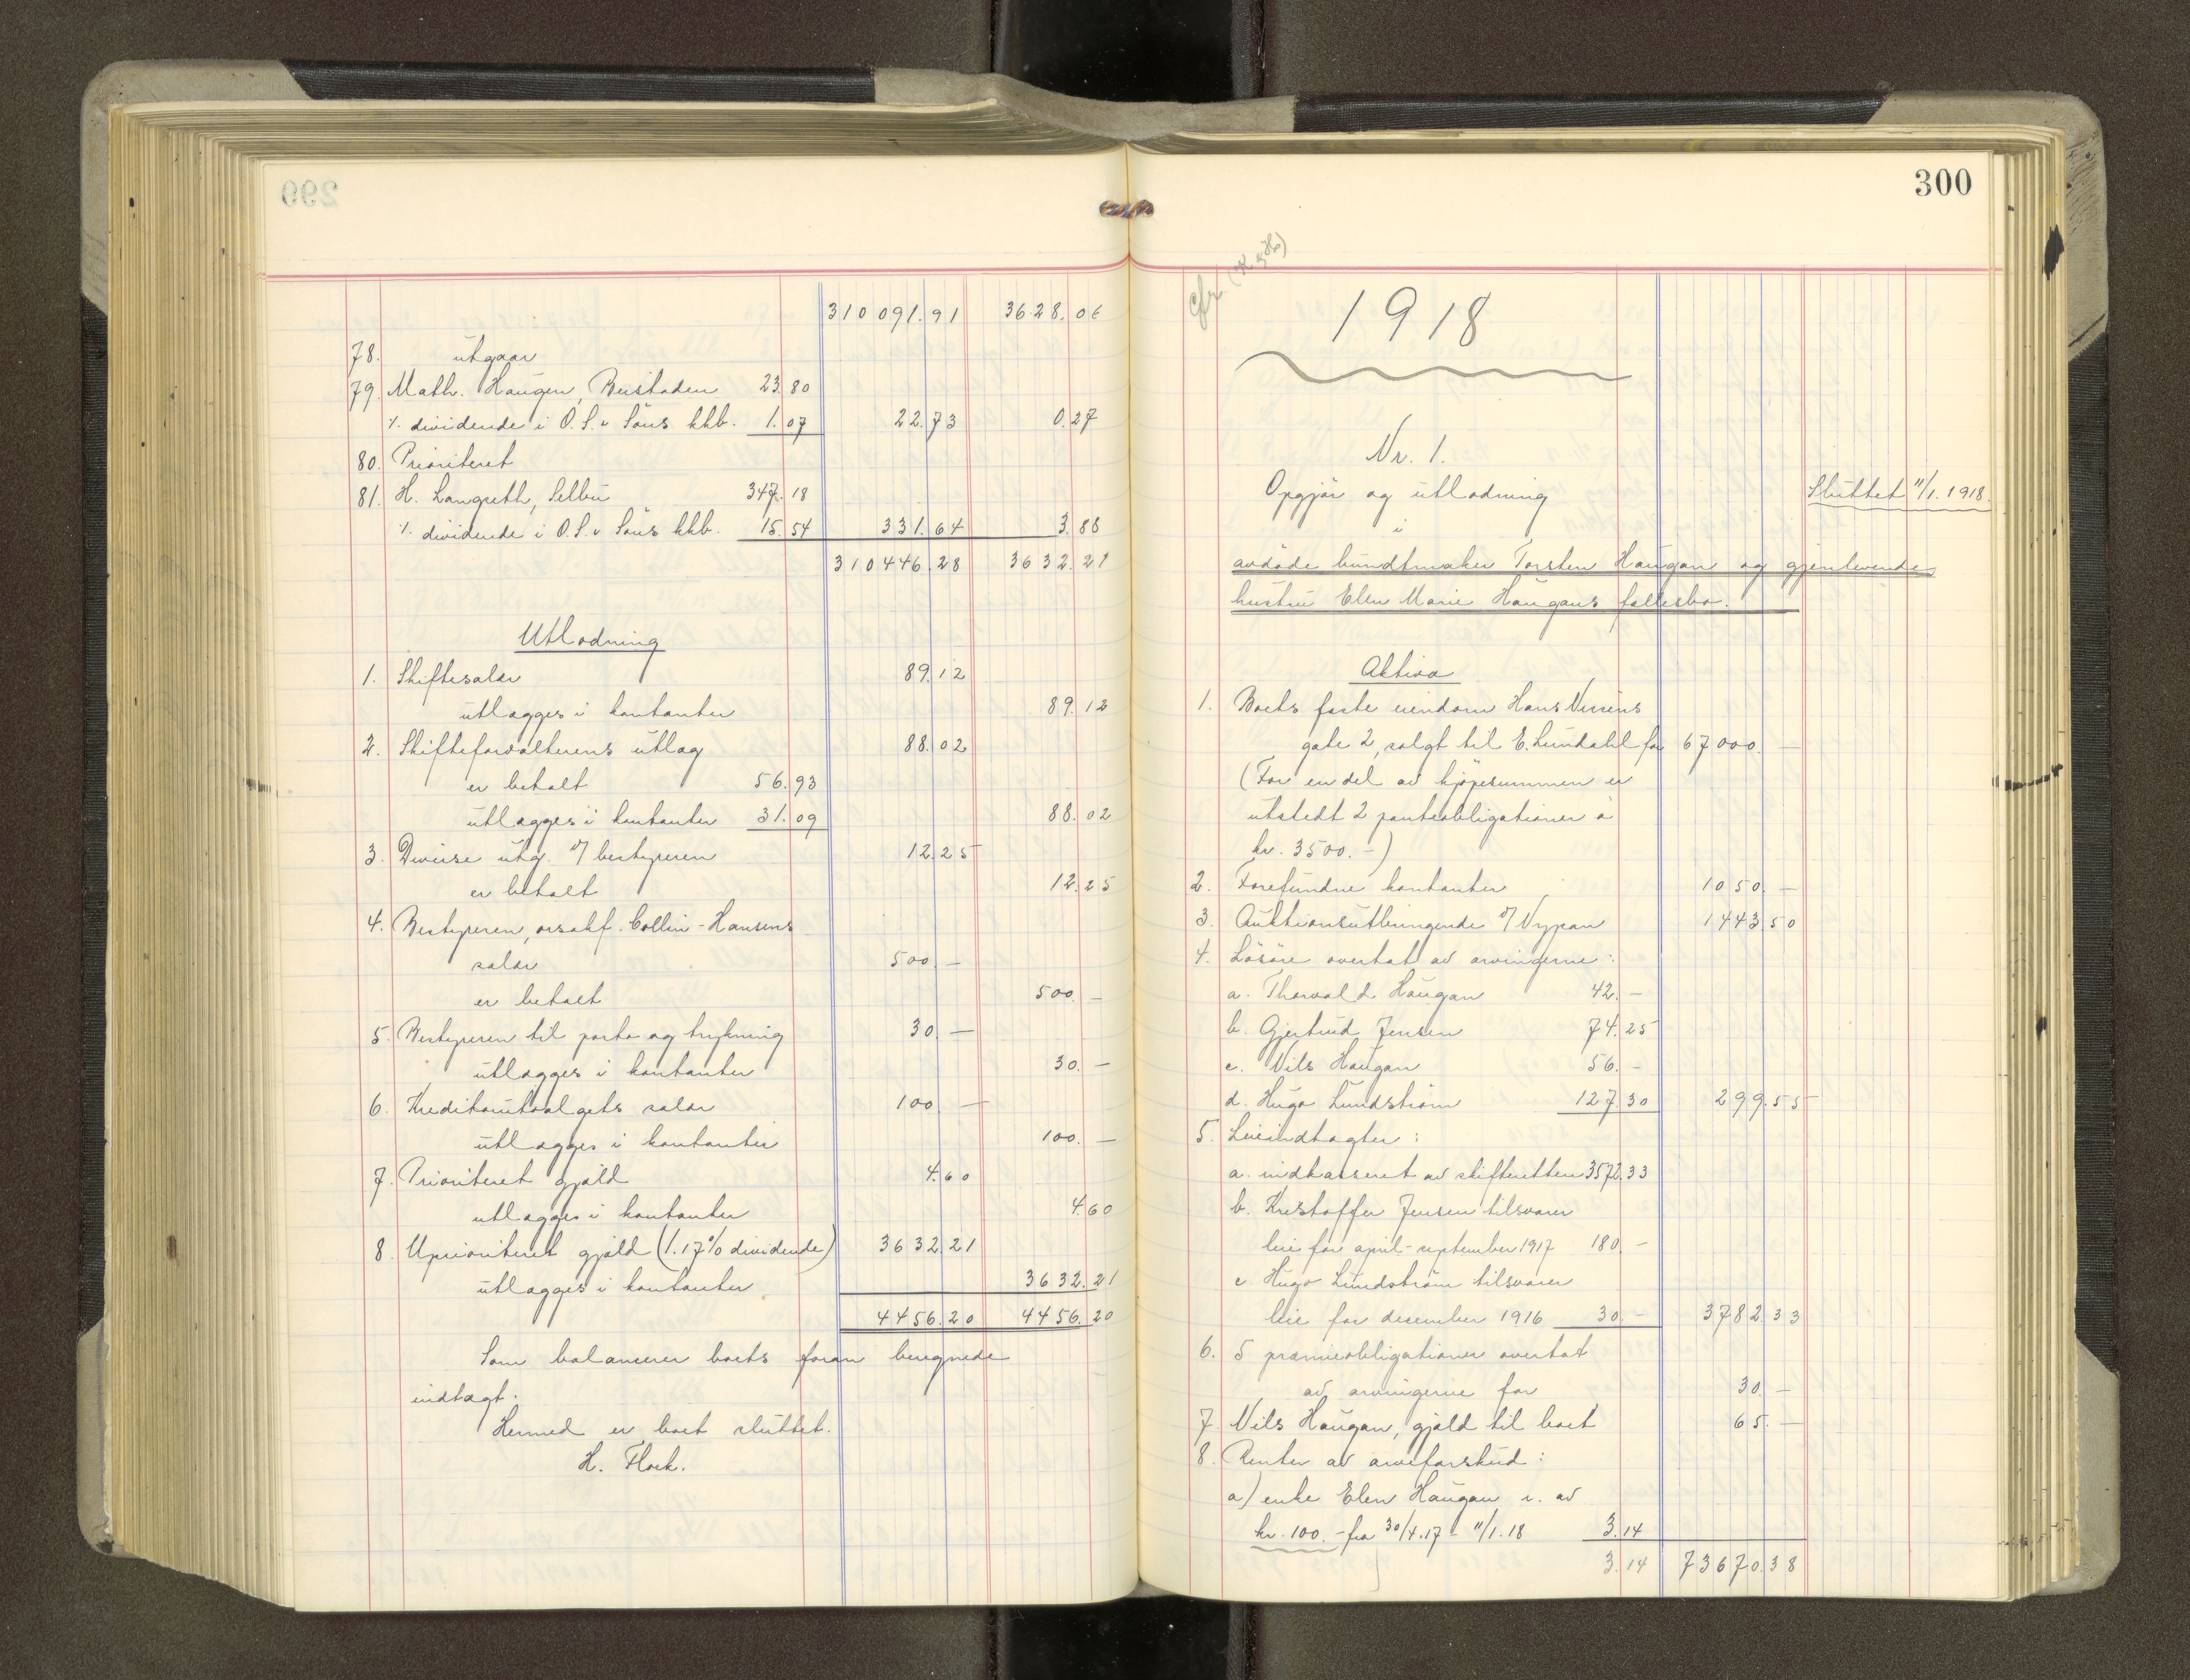 299
310091.91 3628.06
78. utgaar
79. Math. Haugen, Bustaden 23.80
÷ dividende i O. S. v Söns kkb. 1.07 22.73 0.27
80. Prioriteret
81. H. Langseth, Selbu 347.18
÷ dividende i O. S. v Söns kkb. 15.54 331.64 3.88
310446.28 3632.21
Utlodning
1. Skiftesalær 89.12
utlægges i kontanter 89.12
2. Skifteforvalterens utlæg 88.02
er betalt 56.93
utlægges i kontanter 31.09 88.02
3. Diverse utg. v/ bestyreren 12.25
er betalt 12.25
4. Bestyreren, orsakf. Collin-Hansens
salær 500.—
er betalt 500.—
5. Bestyreren til porto og trykning 30.—
utlægges i kontanter 30.—
6. Kreditorutvalgets salær 100.—
utlægges i kontanter 100.—
7. Prioriteret gjæld 4.60
utlægges i kontanter 4.60
8. Uprioriteret gjæld (1.17% dividende) 3632.21
utlægges i kontanter 3632.21
4456.20 4456.20
Som balancerer boets foran beregnede
indtægt.
Hermed er boet sluttet.
H. Flock.
300
1918
Nr. 1.
Opgjör og utlodning
Sluttet 11/1. 1918.
i
avdöde bundtmaker Torsten Haugan og gjenlevende
hustru Elen Marie Haugans fællesbo.
Aktiva
1. Boets faste eiendom Hans Nissens
gate 2, solgt til E. Lundahl for 67000.—
(For en del av kjöpesummen er
utstedt 2 panteobligationer à
kr. 3500.—)
2. Forefundne kontanter 1050.—
3. Auktionsutbringende v/ Nypan 1443.50
4. Lösöre overtat av arvingerne:
a. Thorvald Haugan 42.—
b. Gjertrud Jensen 74.25
c. Nils Haugan 56.—
d. Hugo Lundström 127.30 299.55
5. Leieindtægter:
a. indkasseret av skifteretten 3572.33
b. Kristoffer Jensen tilsvarer
leie for april-september 1917 180.—
c Hugo Lundström tilsvarer
leie for desember 1916 30.— 3782.33
6. 5 præmieobligationer overtat
av arvingerne for 30.—
7. Nils Haugan, gjæld til boet 65.—
8. Renter av arveforskud:
a) enke Elen Haugan r. av
kr. 100.— fra 30/4.17 - 11/1.18 3.14
3.14 73670.38